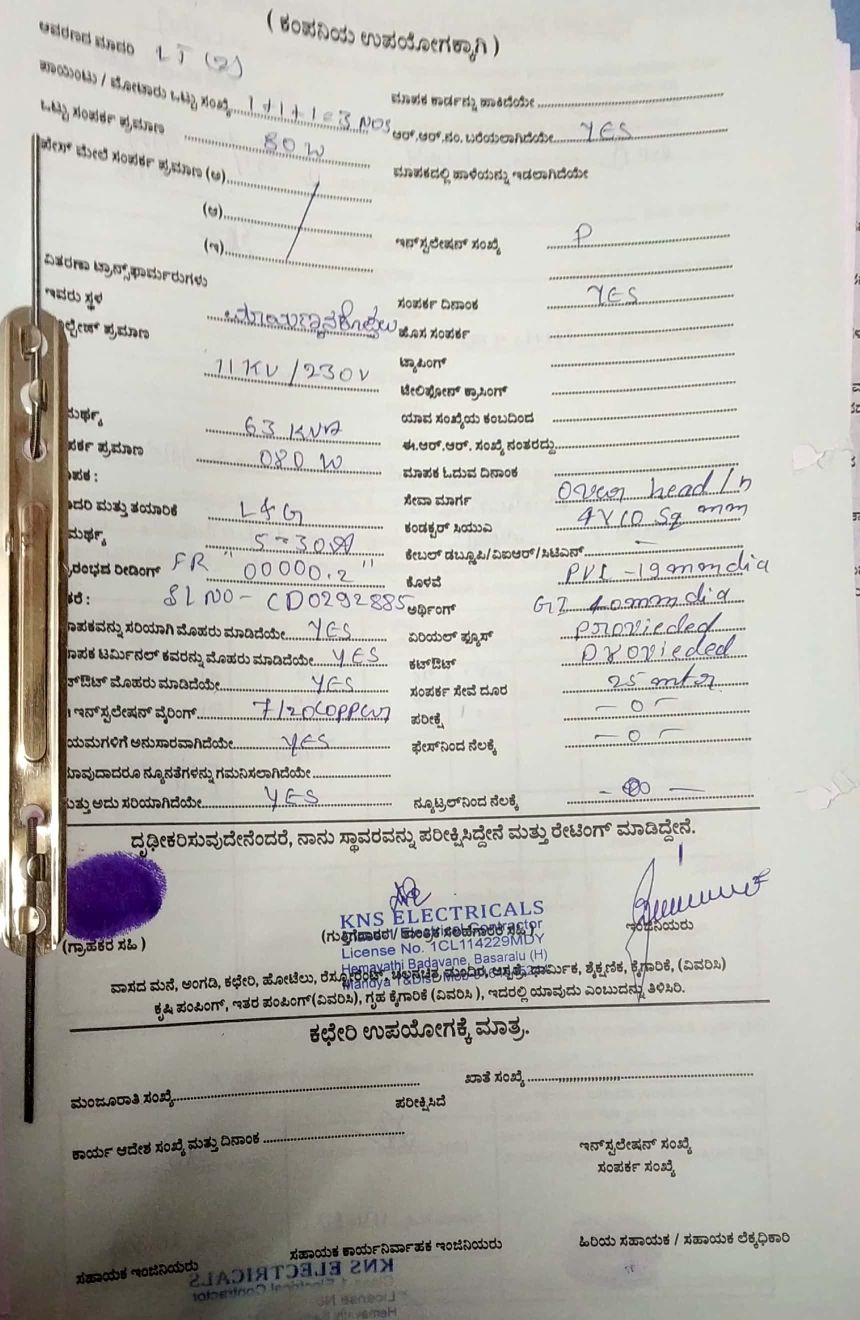 ( ಕಂಪನಿಯ ಉಪಯೋಗಕ್ಕಾಗಿ )
ಆವರಣದ ಮಾದರಿ LT (2)
ಪಾಯಿಂಟು / ಮೋಟಾರು ಒಟ್ಟು ಸಂಖ್ಯೆ 1+1+1=3 NOS
ಮಾಪಕ ಕಾರ್ಡನ್ನು ಹಾಕಿದೆಯೇ
ಒಟ್ಟು ಸಂಪರ್ಕ ಪ್ರಮಾಣ 80 W
ಆರ್.ಆರ್.ನಂ. ಬರೆಯಲಾಗಿದೆಯೇ YES
ಫೇಸ್ ಮೇಲೆ ಸಂಪರ್ಕ ಪ್ರಮಾಣ (ಅ)
ಮಾಪಕದಲ್ಲಿ ಹಾಳೆಯನ್ನು ಇಡಲಾಗಿದೆಯೇ
(ಆ)
(ಇ)
ಇನ್‌ಸ್ಪಲೇಷನ್ ಸಂಖ್ಯೆ P
ವಿತರಣಾ ಟ್ರಾನ್ಸ್‌ಫಾರ್ಮರುಗಳು
ಇವರು ಸ್ಥಳ
ಸಂಪರ್ಕ ದಿನಾಂಕ YES
ಪ್ರಮಾಣ
ಹೊಸ ಸಂಪರ್ಕ
11 KV / 230V
ಟ್ಯಾಪಿಂಗ್
ಟೇಲಿಫೋನ್ ಕ್ರಾಸಿಂಗ್
ಮರ್ಥ್ಯ 63 KVA
ಯಾವ ಸಂಖ್ಯೆಯ ಕಂಬದಿಂದ
ಪರ್ಕ ಪ್ರಮಾಣ 080 W
ಈ.ಆರ್.ಆರ್. ಸಂಖ್ಯೆ ನಂತರದ್ದು
ಪಕ :
ಮಾಪಕ ಓದುವ ದಿನಾಂಕ
ದರಿ ಮತ್ತು ತಯಾರಿಕೆ L&G
ಸೇವಾ ಮಾರ್ಗ Over head/n
ಮರ್ಥ್ಯ 5-30A
ಕಂಡಕ್ಟರ್ ಸಿಯುಎ 4X10 Sq mm
ರಂಭದ ರೀಡಿಂಗ್ FR "00000.2"
ಕೇಬಲ್ ಡಬ್ಲೂಪಿ/ವಿಐಆರ್/ಸಿಟಿಎಸ್ —
ಕೊಳವೆ PVC -19mm dia
ಕರೆ : SL NO - CD0292885
ಅರ್ಥಿಂಗ್ GI 40mm dia
ಾಪಕವನ್ನು ಸರಿಯಾಗಿ ಮೊಹರು ಮಾಡಿದೆಯೇ YES
ಏರಿಯಲ್ ಫ್ಯೂಸ್ provieded
ಾಪಕ ಟರ್ಮಿನಲ್ ಕವರನ್ನು ಮೊಹರು ಮಾಡಿದೆಯೇ YES
ಕಟ್‌ಔಟ್ provieded
ತ್‌ಔಟ್ ಮೊಹರು ಮಾಡಿದೆಯೇ YES
ಸಂಪರ್ಕ ಸೇವೆ ದೂರ 25 mtr
ಇನ್‌ಸ್ಪಲೇಷನ್ ವೈರಿಂಗ್ 7/20 copper
ಪರೀಕ್ಷೆ — 0 —
ಯಮಗಳಿಗೆ ಅನುಸಾರವಾಗಿದೆಯೇ YES
ಫೇಸ್‌ನಿಂದ ನೆಲಕ್ಕೆ — 0 —
ಾವುದಾದರೂ ನ್ಯೂನತೆಗಳನ್ನು ಗಮನಿಸಲಾಗಿದೆಯೇ
ುತ್ತು ಅದು ಸರಿಯಾಗಿದೆಯೇ YES
ನ್ಯೂಟ್ರಲ್‌ನಿಂದ ನೆಲಕ್ಕೆ — 0 —
ದೃಢೀಕರಿಸುವುದೇನೆಂದರೆ, ನಾನು ಸ್ಥಾವರವನ್ನು ಪರೀಕ್ಷಿಸಿದ್ದೇನೆ ಮತ್ತು ರೇಟಿಂಗ್ ಮಾಡಿದ್ದೇನೆ.
KNS ELECTRICALS
Electrical Contractor
(ಗ್ರಾಹಕರ ಸಹಿ )
ಇಂಜಿನಿಯರು
License No. 1CL114229MDY
Hemavathi Badavane, Basaralu (H)
Mandya T&Dist
ವಾಸದ ಮನೆ, ಅಂಗಡಿ, ಕಛೇರಿ, ಹೋಟೆಲು, ರೆಸ್ಟೋರೆಂಟ್, ಚಲನಚಿತ್ರ ಮಂದಿರ, ಆಸ್ಪತ್ರೆ, ಧಾರ್ಮಿಕ, ಶೈಕ್ಷಣಿಕ, ಕೈಗಾರಿಕೆ, (ವಿವರಿಸಿ)
ಕೃಷಿ ಪಂಪಿಂಗ್, ಇತರ ಪಂಪಿಂಗ್(ವಿವರಿಸಿ), ಗೃಹ ಕೈಗಾರಿಕೆ (ವಿವರಿಸಿ ), ಇದರಲ್ಲಿ ಯಾವುದು ಎಂಬುದನ್ನು ತಿಳಿಸಿರಿ.
ಕಛೇರಿ ಉಪಯೋಗಕ್ಕೆ ಮಾತ್ರ.
ಮಂಜೂರಾತಿ ಸಂಖ್ಯೆ
ಖಾತೆ ಸಂಖ್ಯೆ
ಪರೀಕ್ಷಿಸಿದೆ
ಕಾರ್ಯ ಆದೇಶ ಸಂಖ್ಯೆ ಮತ್ತು ದಿನಾಂಕ
ಇನ್‌ಸ್ಪಲೇಷನ್ ಸಂಖ್ಯೆ
ಸಂಪರ್ಕ ಸಂಖ್ಯೆ
ಸಹಾಯಕ ಇಂಜಿನಿಯರು
ಸಹಾಯಕ ಕಾರ್ಯನಿರ್ವಾಹಕ ಇಂಜಿನಿಯರು
ಹಿರಿಯ ಸಹಾಯಕ / ಸಹಾಯಕ ಲೆಕ್ಕಧಿಕಾರಿ
KNS ELECTRICALS